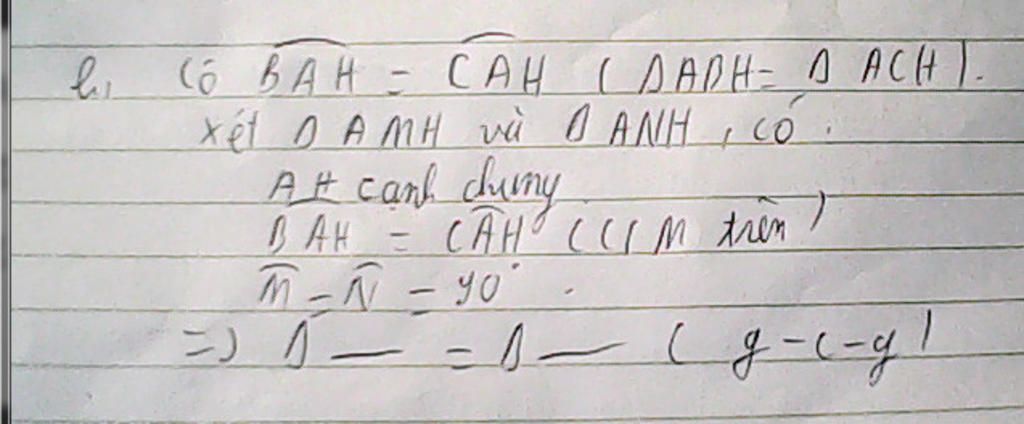 b, Có BAH = CAH ( Δ ABH = Δ ACH ).
Xét Δ AMH và Δ ANH , có :
AH cạnh chung
BAH = CAH ( C/M trên )
M = N = 90°
=> Δ — = Δ — ( g - c - g )